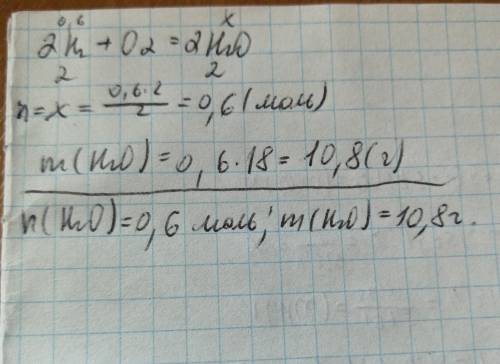 0,6 x
2H2 + O2 = 2H2O
2 2
n = x = 0,6·2/2 = 0,6 (моль)
m(H2O) = 0,6·18 = 10,8(г)
n(H2O) = 0,6 моль; m(H2O) = 10,8г.